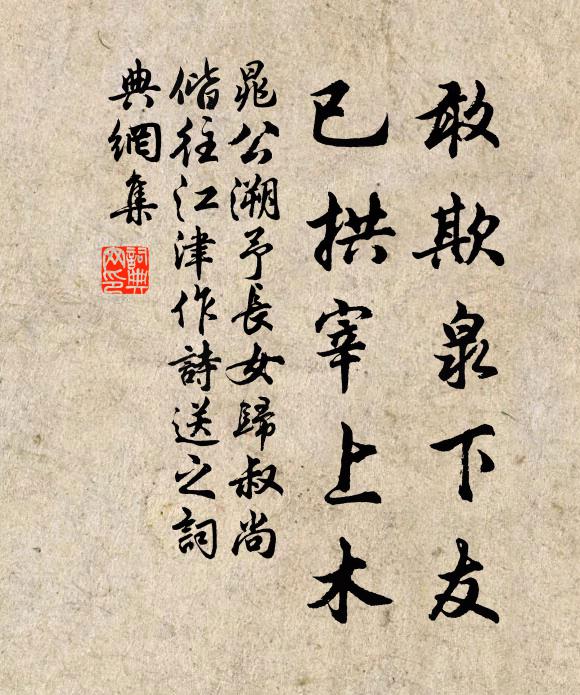 敢欺泉下友
已拱宰上木
晁公溯予長女歸叔尚
偕往江津作詩送之詞
典網集
詞典網印